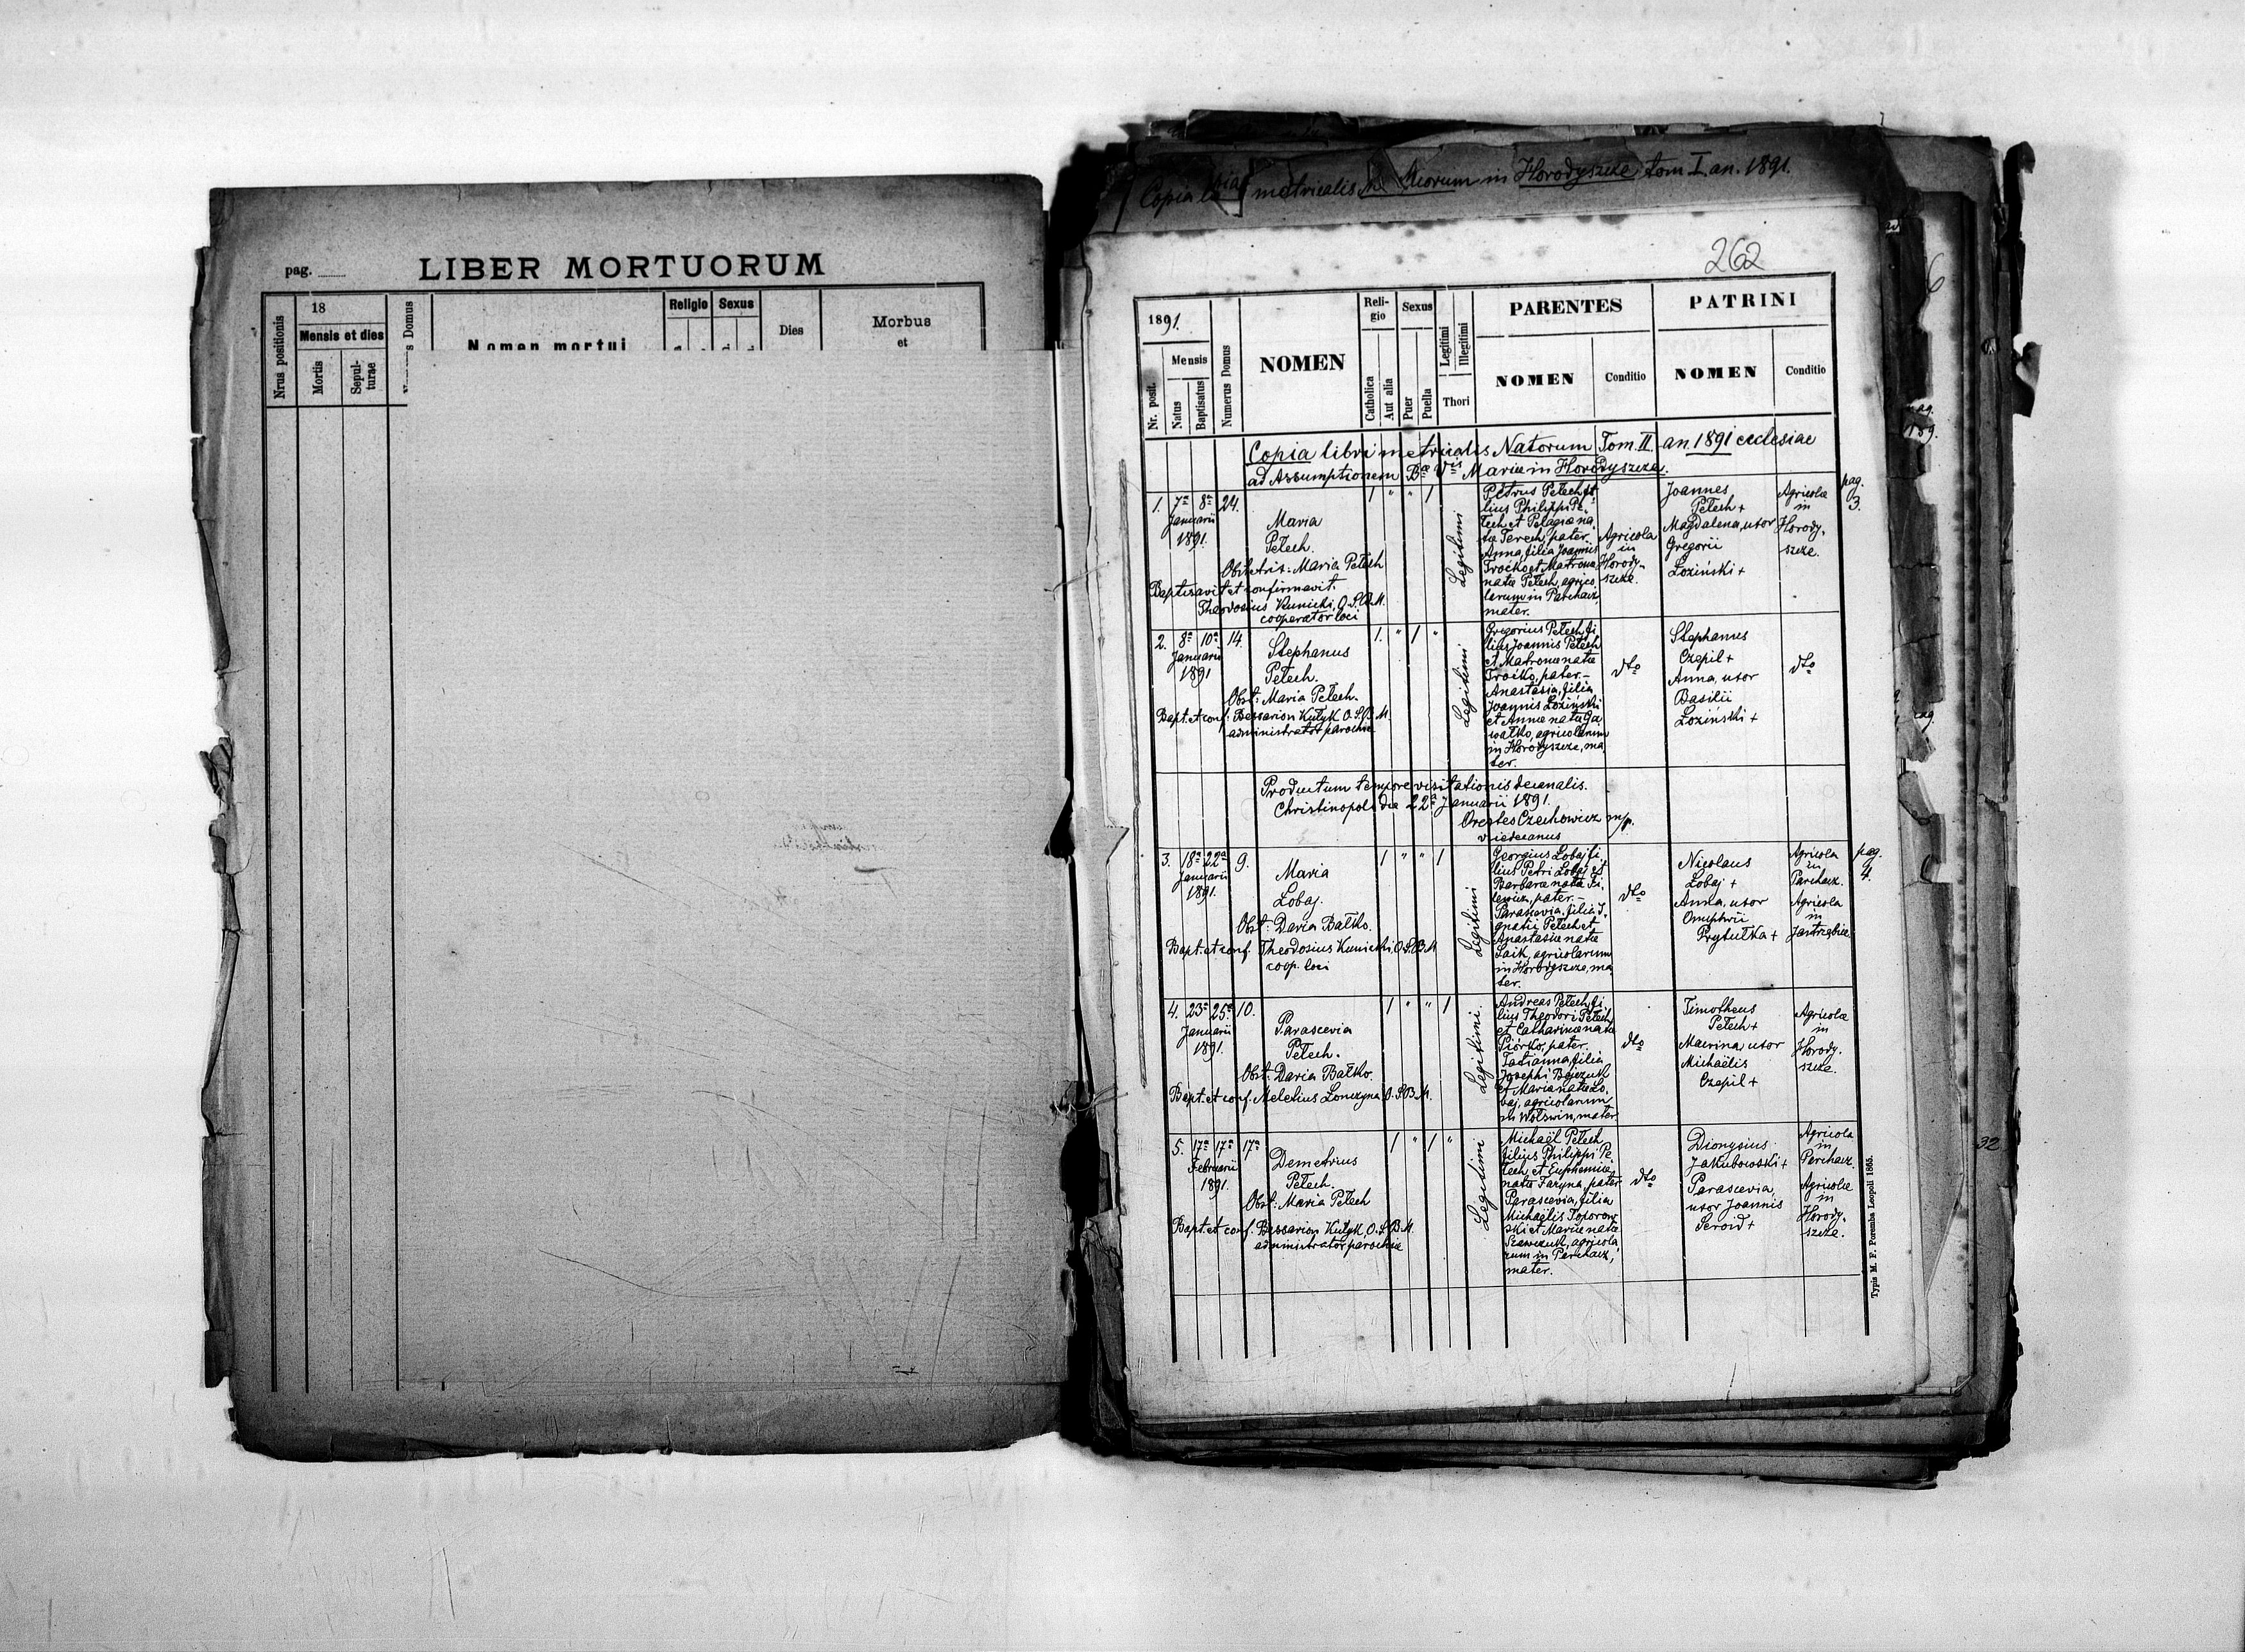 pag.
LIBER MORTUORUM
Nrus positionis
18
Mensis et dies
Mortis
Sepul-
turae
Domus
Nomen mortui
Religio
Sexus
Dies
Morbus
et
metricalis
in Horodyszcze tom I. an. 1891.
262
1891.
Nr. posit.
Mensis
Natus
Baptisatus
Numerus Domus
NOMEN
Reli-
gio
Catholica
Aut alia
Sexus
Puer
Puella
Legitimi
Illegitimi
Thori
PARENTES
NOMEN
Conditio
PATRINI
NOMEN
Conditio
Copia libri metricalis Natorum Tom. II. an. 1891 ecclesiae
ad Assumptionem Bae Vis Mariae in Horodyszcze.
pag.
3.
1. 7a 8a 24.
Januarii
1891.
Maria
Pełech.
Obstetrix: Maria Pełech
Baptisavit et confirmavit.
Theodosius Kunicki, O.S.B.M.
cooperator loci
1 " " 1
Legitimi
Petrus Pełech, fi-
lius Philippi Pe-
łech et Pelagiae na-
tae Terech, pater.
Anna, filia Joannis
Troćko et Matronae
natae Pełech, agrico-
larum in Parchacz,
mater.
Agricola
in
Horody-
szcze.
Joannes
Pełech +
Magdalena, uxor
Gregorii
Łoziński +
Agricolae
in
Horody-
szcze.
2. 8a 10a 14.
Januarii
1891
Stephanus
Pełech.
Obst: Maria Pełech.
Bapt. et conf: Bessarion Kułyk O.S.B.M.
administrator parochiae
1. " 1 "
Legitimi
Gregorius Pełech, fi-
lius Joannis Pełech
et Matronae natae
Troćko, pater. –
Anastasia, filia
Joannis Łoziński
et Annae natae Ga-
wałko, agricolarum
in Horodyszcze, ma-
ter.
dto
Stephanus
Czepil +
Anna, uxor
Basilii
Łoziński +
dto
Productum tempore visitationis decanalis.
Christinopoli die 22a Januarii 1891.
Orestes Czechowicz mp.
vicedecanus
pag.
4.
3. 18a 22a 9.
Januarii
1891.
Maria
Łobaj.
Obst: Daria Bałko.
Bapt. et conf. Theodosius Kunicki, O.S.B.M.
coop. loci
1 " " 1
Legitimi
Georgius Łobaj, fi-
lius Petri Łobaj et
Barbarae natae
pater. –
Parascevia, filia I-
gnatii Pełech et
Anastasiae natae
agricolarum
in Horodyszcze, ma-
ter.
dto
Nicolaus
Łobaj +
Anna, uxor
Onuphrii
Prytułka +
Agricola
in
Parchacz.
Agricola
in
Jastrzębica
4. 23a 25a 10.
Januarii
1891.
Parascevia
Pełech.
Obst: Daria Bałko.
Bapt. et conf. Meletius Łonczyna O.S.B.M.
1 " " 1
Legitimi.
Andreas Pełech, fi-
lius Theodori Pełech
et Catharinae natae
Piórko, pater.
Tatianna, filia
Josephi Bojczuk
et Mariae natae Ło-
baj, agricolarum
in Wolswin, mater.
dto
Timotheus
Pełech +
Macrina uxor
Michaëlis
Czepil +
Agricolae
in
Horody-
szcze.
5. 17a 17a 17a
Februarii
1891.
Demetrius
Pełech.
Obst: Maria Pełech
Bapt. et conf. Bessarion Kułyk, O.S.B.M.
administrator parochiae
1 " 1 "
Legitimi
Michaël Pełech
filius Philippi Pe-
łech et Euphemiae
natae Faryna, pater
Parascevia, filia
Michaëlis Toporow-
ski et Mariae natae
Szewczuk, agricola-
rum in Parchacz,
mater.
dto
Dionysius
Jakubowski +
Parascevia,
uxor Joannis
Seroid +
Agricola
in
Parchacz.
Agricolae
in
Horody-
szcze.
32
Typis M. F. Poremba Leopoli 1865.